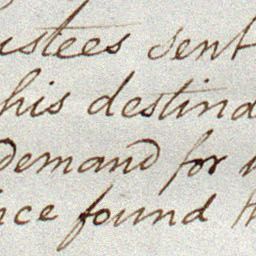 istees sent
his destina
demand for
nce found th